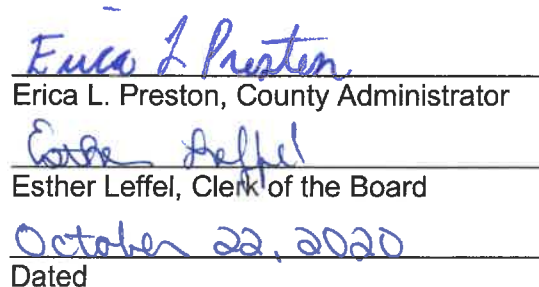 Erica L Preston
Erica L. Preston, County Administrator
Esther Leffel
Esther Leffel, Clerk of the Board
October 22, 2020
Dated